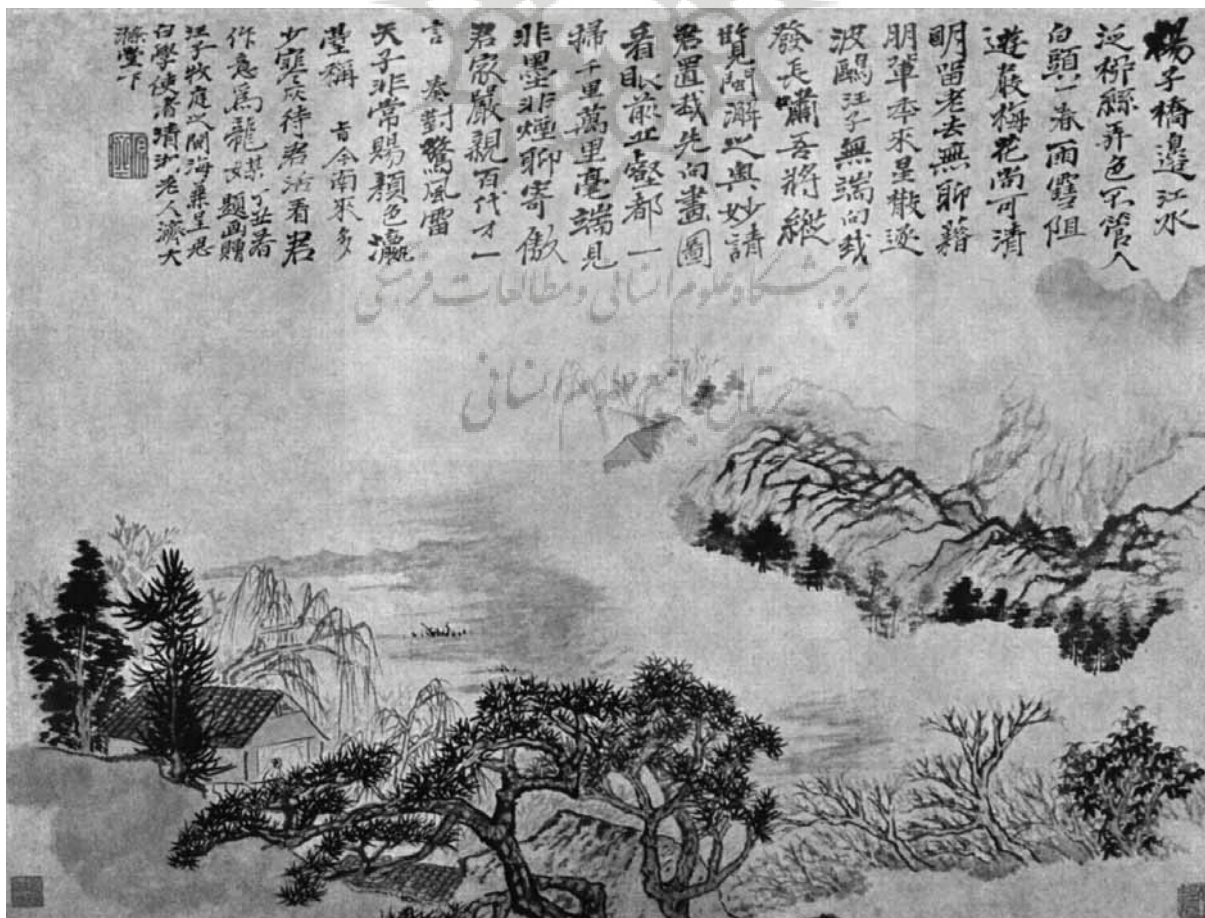 楊子橋邊江水
泛柳絲弄色不管人
白頭一春雨雪阻
遊嚴梅花尚可清
明留老去無聊藉
朋輩本來星散逐
波鷗汪子無端向我
發長嘯吾將縱
覽閩澥之奧妙請
君置我先向畫圖
看眼前丘壑都一
掃千里萬里毫端見
非墨非煙聊寄傲
君家嚴親百代才一
言湊對驚風雷
天子非常賜顏色瀛
稱旨今南來多
少寒灰待君活看君
作意為龍媒丁丑春
題畫贈
汪子牧庭之閩海兼呈思
白學使者清湘老人濟大
滌堂下
پژوهشگاه علوم انسانی و مطالعات فرهنگی
پرتال جامع علوم انسانی